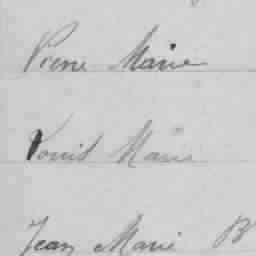 Pierre Marie
Marie
Jean Marie B